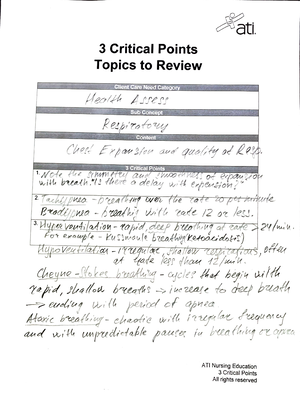 ati.
3 Critical Points
Topics to Review
Client Care Need Category
Health Assess
Sub Concept
Respiratory
Content
Chest Expansion and quality of Resp.
3 Critical Points
1. Note the symmetry and smoothness of expansion
with breath. Is there a delay with expansion?
2. Tachypnea - breathing over the rate 20 per minute
Bradypnea - breathing with rate 12 or less.
3. Hyperventilation - rapid, deep breathing at rate > 24/min.
For example - Kussmaule breathing (ketoacidosis)
Hypoventilation - irregular, shallow respirations, often
at rate less than 12/min.
Cheyne-Stokes breathing - cycles that begin with
rapid, shallow breaths → increase to deep breath
→ ending with period of apnea
Ataxic breathing - chaotic with irregular frequency
and with unpredictable pauses in breathing or apnea
ATI Nursing Education
3 Critical Points
All rights reserved